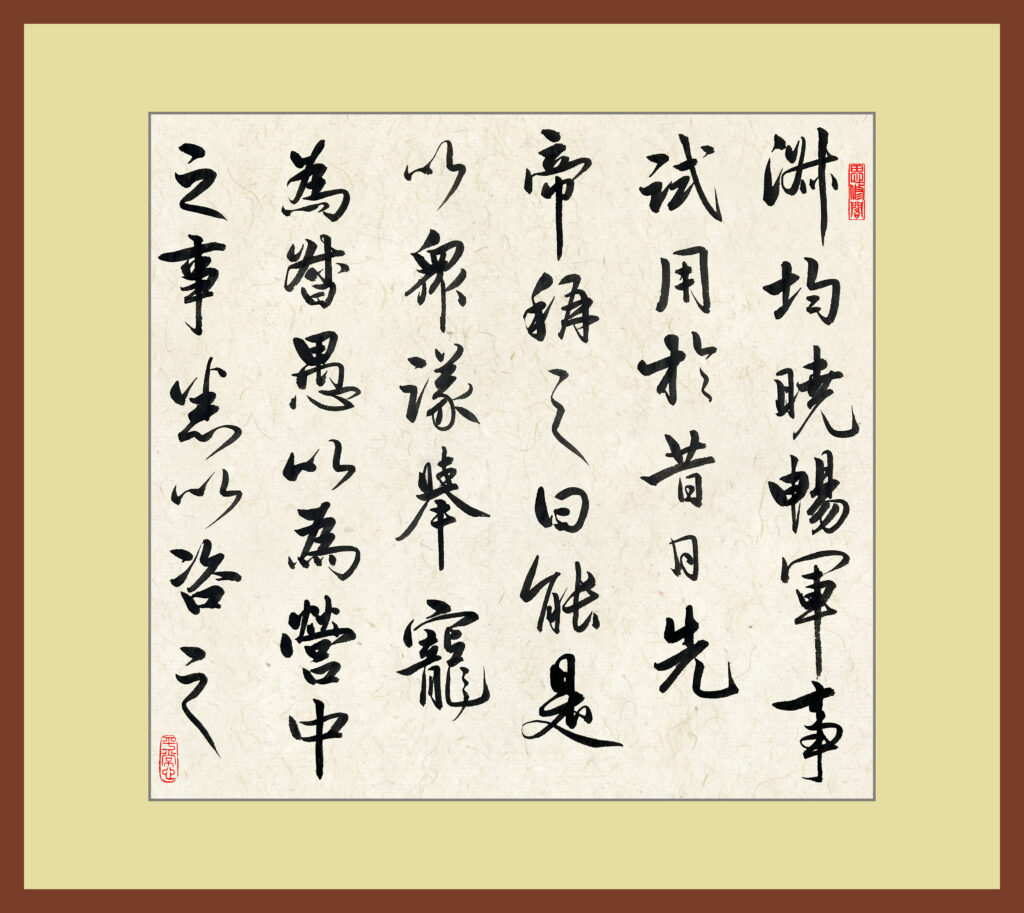 思修閣
淑均曉暢軍事
試用於昔日先
帝稱之曰能是
以衆議舉寵
為督愚以為營中
之事悉以咨之
平常心